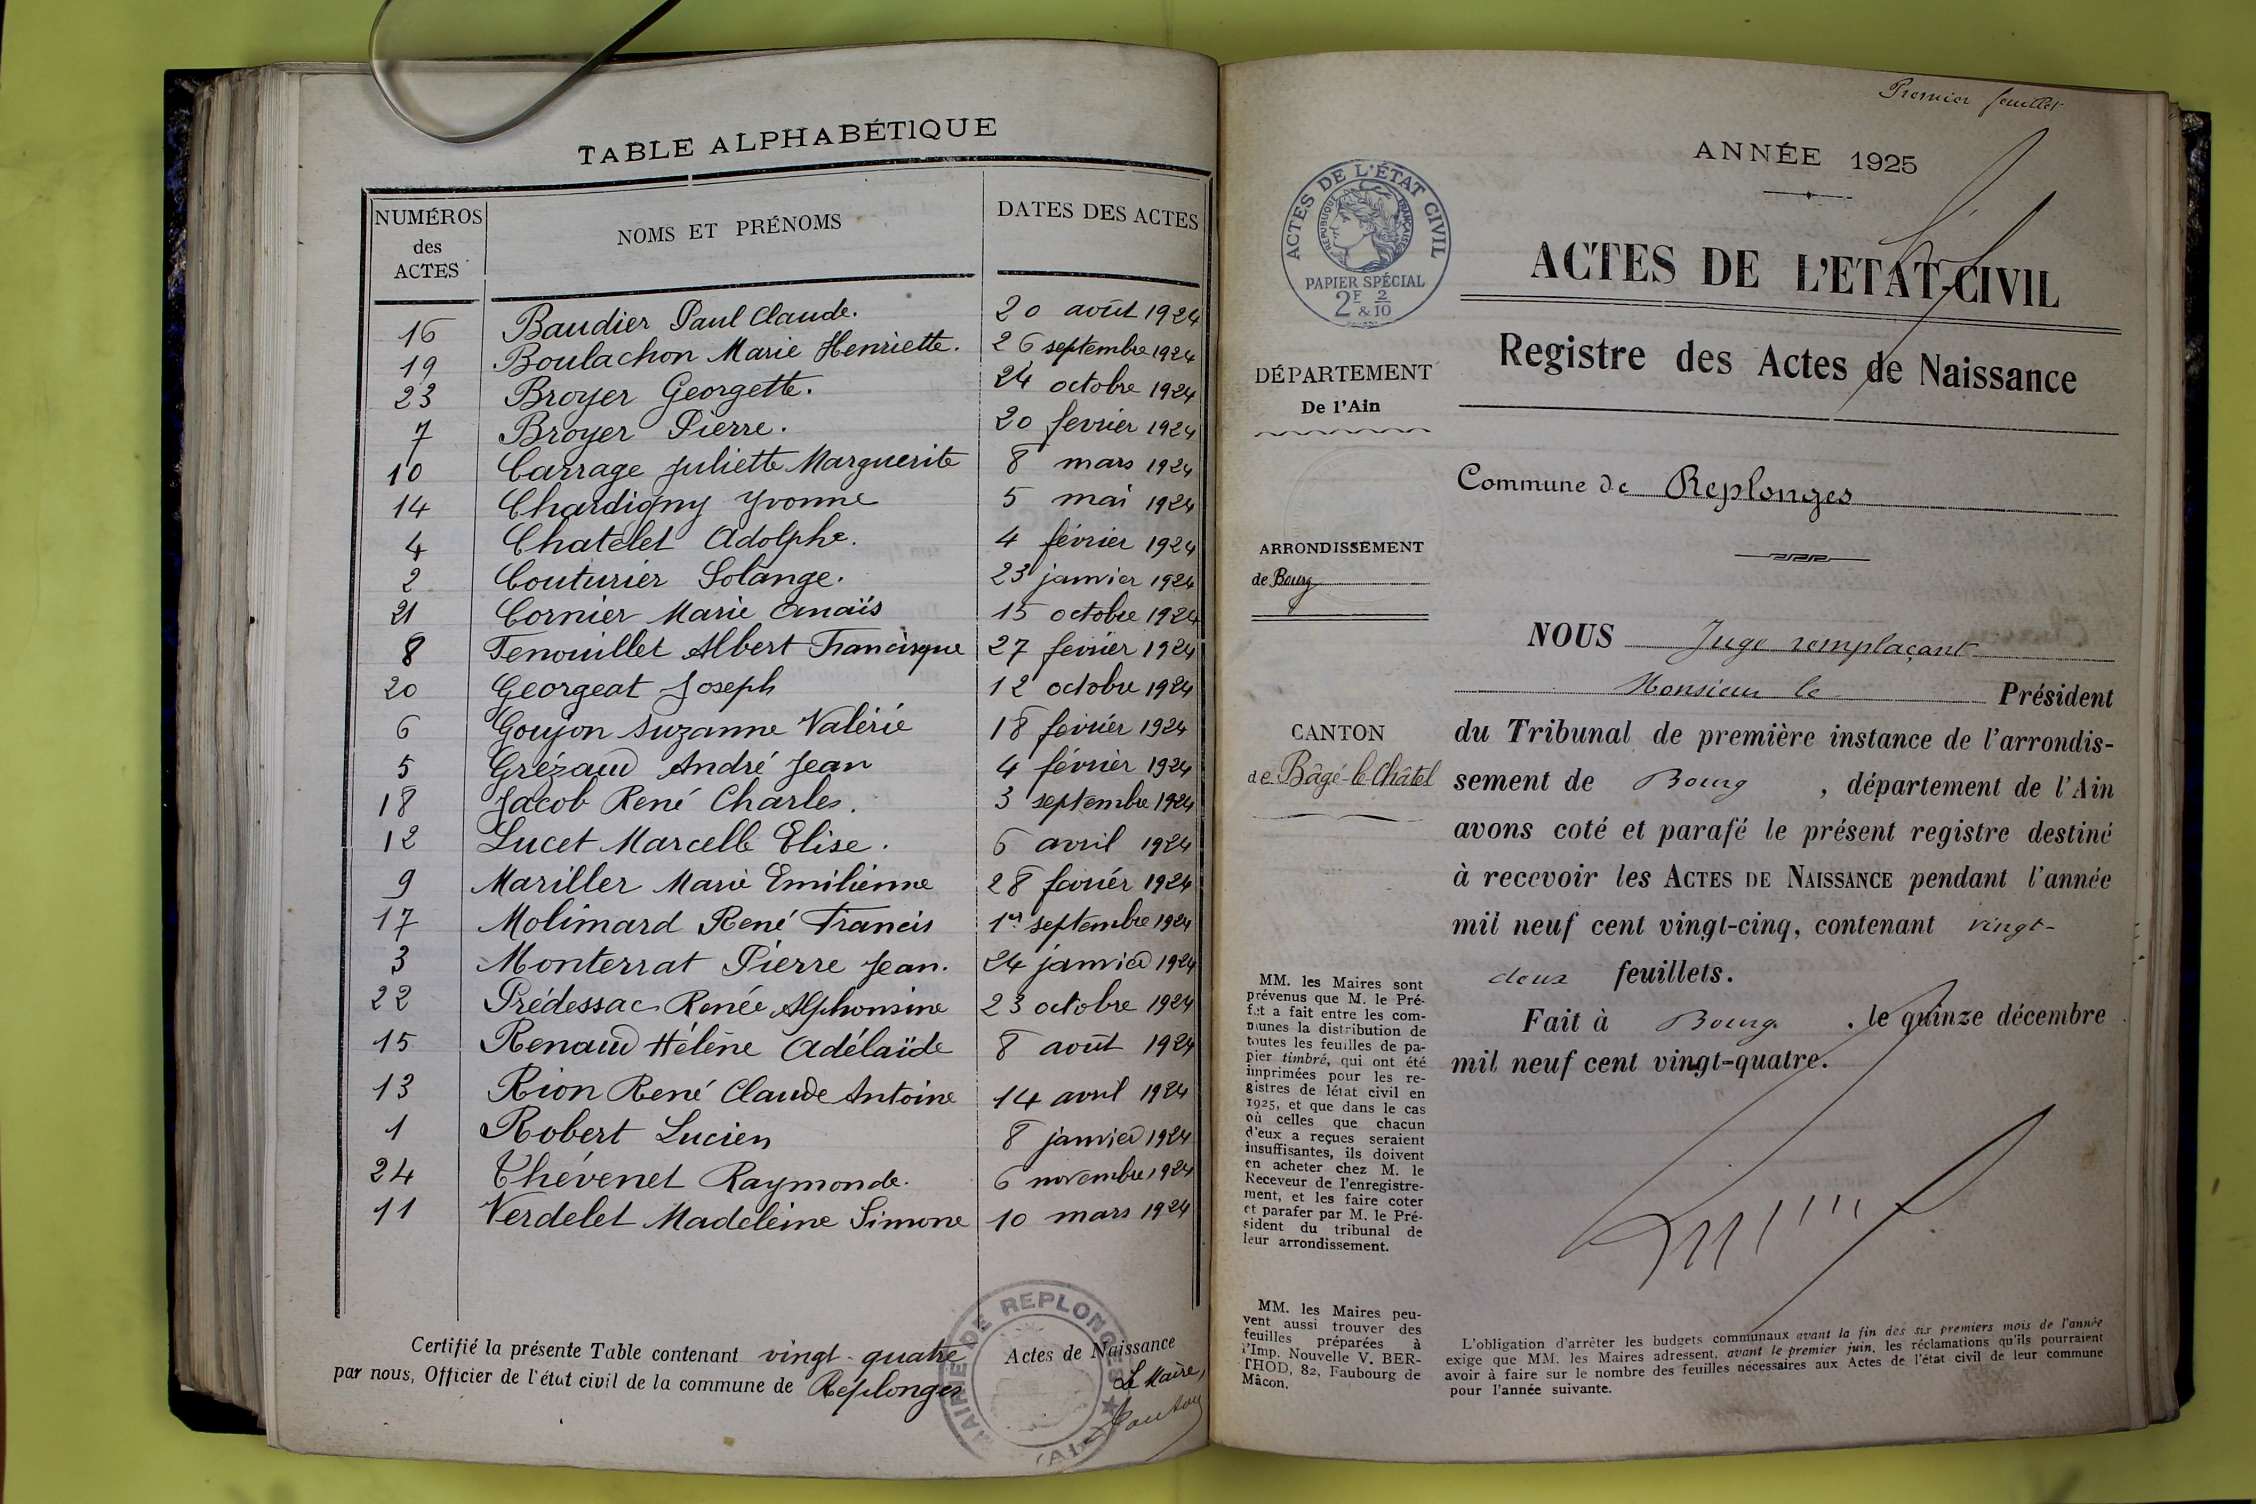 TABLE ALPHABÉTIQUE
NUMÉROS des ACTES
NOMS ET PRÉNOMS
DATES DES ACTES
16 Baudier Paul Claude. 20 août 1924
19 Boulachon Marie Henriette. 26 septembre 1924
23 Broyer Georgette. 24 octobre 1924
7 Broyer Pierre. 20 fevrier 1924
10 Carrage Juliette Marguerite 8 mars 1924
14 Chardigny Yvonne 5 mai 1924
4 Chatelet Adolphe. 4 février 1924
2 Couturier Solange. 23 janvier 1924
21 Cornier Marie Anaïs 15 octobre 1924
8 Fenouillet Albert Francisque 27 fevrier 1924
20 Georgeat Joseph 12 octobre 1924
6 Goujon Suzanne Valérie 18 fevrier 1924
5 Grézaud André Jean 4 février 1924
18 Jacob René Charles. 3 septembre 1924
12 Lucet Marcelle Elise. 6 avril 1924
9 Mariller Marie Emilienne 28 fevrier 1924
17 Molimard René Francis 1er septembre 1924
3 Monterrat Pierre Jean. 24 janvier 1924
22 Prédessac Renée Alphonsine 23 octobre 1924
15 Renaud Hélène Adélaïde 8 août 1924
13 Rion René Claude Antoine 14 avril 1924
1 Robert Lucien 8 janvier 1924
24 Thévenet Raymonde. 6 novembre 1924
11 Verdelet Madeleine Simone 10 mars 1924
Certifié la présente Table contenant vingt-quatre Actes de Naissance
par nous, Officier de l'état civil de la commune de Replonges
Le Maire,
MAIRIE DE REPLONGES
(AIN)
Premier feuillet
ANNÉE 1925
ACTES DE L'ÉTAT CIVIL
RÉPUBLIQUE FRANÇAISE
PAPIER SPÉCIAL
2F 2/10
& 10
ACTES DE L'ETAT-CIVIL
Registre des Actes de Naissance
DÉPARTEMENT
De l'Ain
Commune de Replonges
ARRONDISSEMENT
de Bourg
CANTON
de Bâgé-le-Châtel
NOUS Juge remplaçant
Monsieur le Président
du Tribunal de première instance de l'arrondis-
sement de Bourg, département de l'Ain
avons coté et parafé le présent registre destiné
à recevoir les ACTES DE NAISSANCE pendant l'année
mil neuf cent vingt-cinq, contenant vingt-
deux feuillets.
Fait à Bourg, le quinze décembre
mil neuf cent vingt-quatre.
MM. les Maires sont
prévenus que M. le Pré-
fet a fait entre les com-
munes la distribution de
toutes les feuilles de pa-
pier timbré, qui ont été
imprimées pour les re-
gistres de létat civil en
1925, et que dans le cas
où celles que chacun
d'eux a reçues seraient
insuffisantes, ils doivent
en acheter chez M. le
Receveur de l'enregistre-
ment, et les faire coter
et parafer par M. le Pré-
sident du tribunal de
leur arrondissement.
MM. les Maires peu-
vent aussi trouver des
feuilles préparées à
l'Imp. Nouvelle V. BER-
THOD, 82, Faubourg de
Mâcon.
L'obligation d'arrêter les budgets communaux avant la fin des six premiers mois de l'année
exige que MM. les Maires adressent, avant le premier juin, les réclamations qu'ils pourraient
avoir à faire sur le nombre des feuilles nécessaires aux Actes de l'état civil de leur commune
pour l'année suivante.